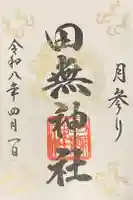 月参り
田無神社
令和八年四月一日